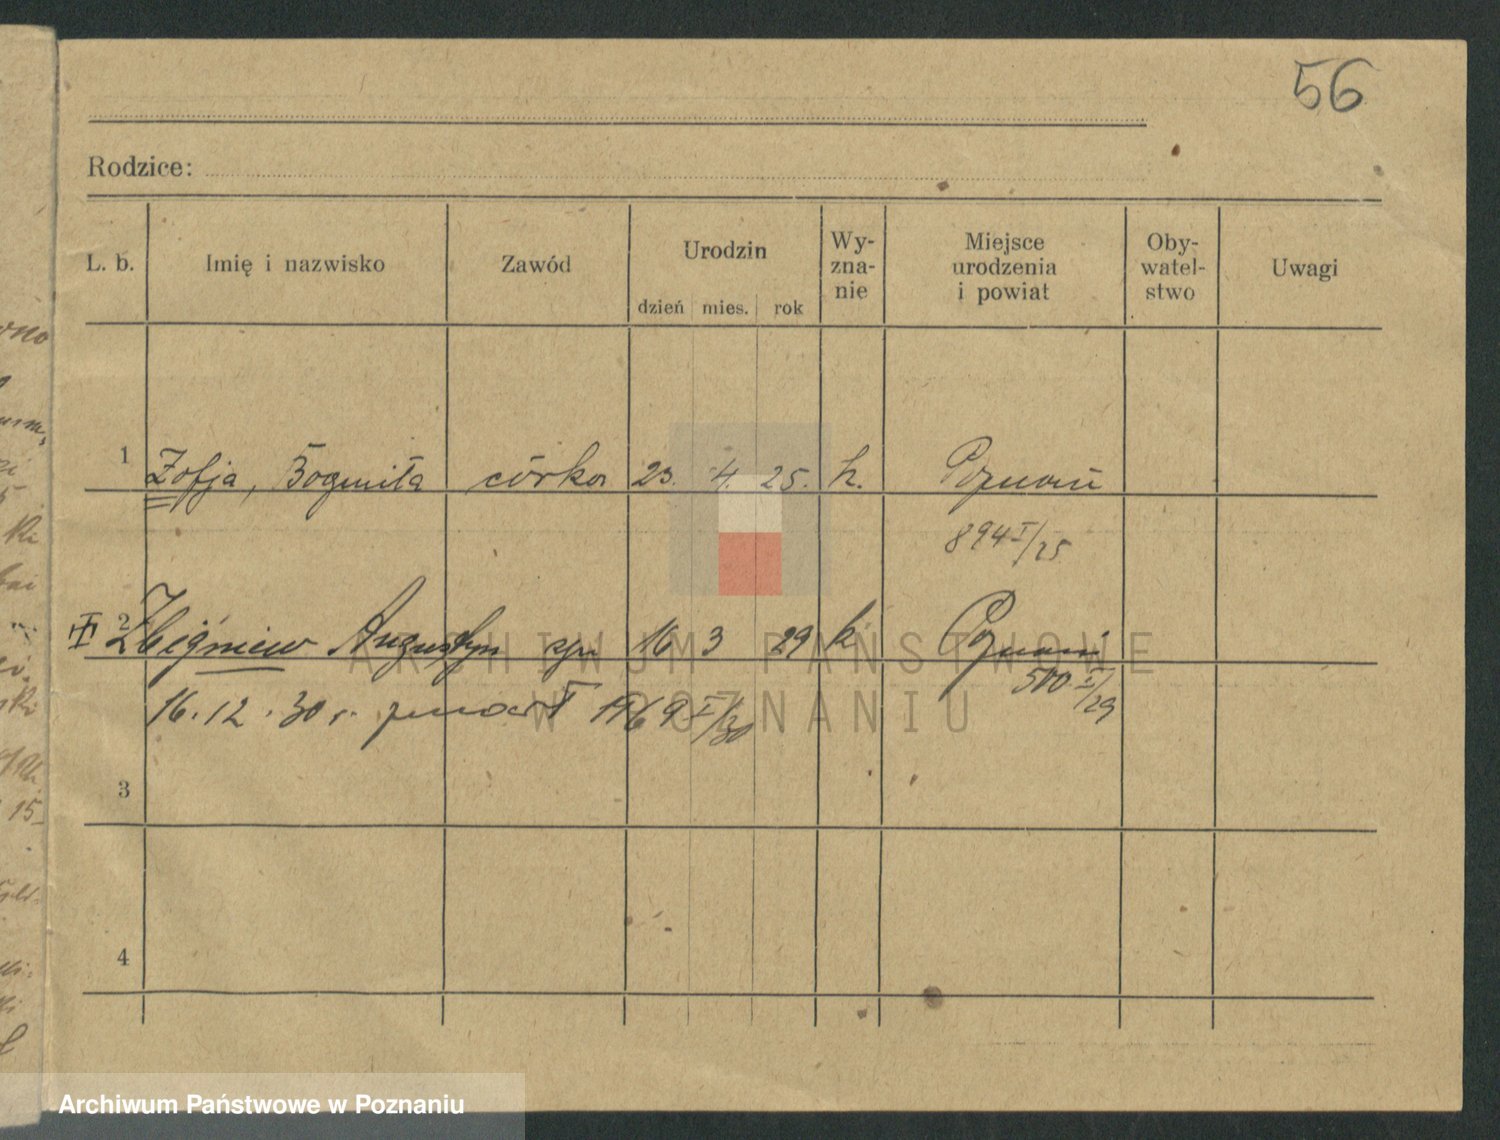 56
Rodzice:
L. b. Imię i nazwisko Zawód Urodzin dzień mies. rok Wy-zna-nie Miejsce urodzenia i powiat Oby-watel-stwo Uwagi
1 Zofja, Bogumiła córka 23. 4. 25. k. Poznań
894 I/25
2 Zbigniew Augustyn syn 16 3 29 k Poznań
500 I/29
16.12.30 r. zmarł 1969 I/30
3
4
ARCHIWUM PAŃSTWOWE
W POZNANIU
Archiwum Państwowe w Poznaniu